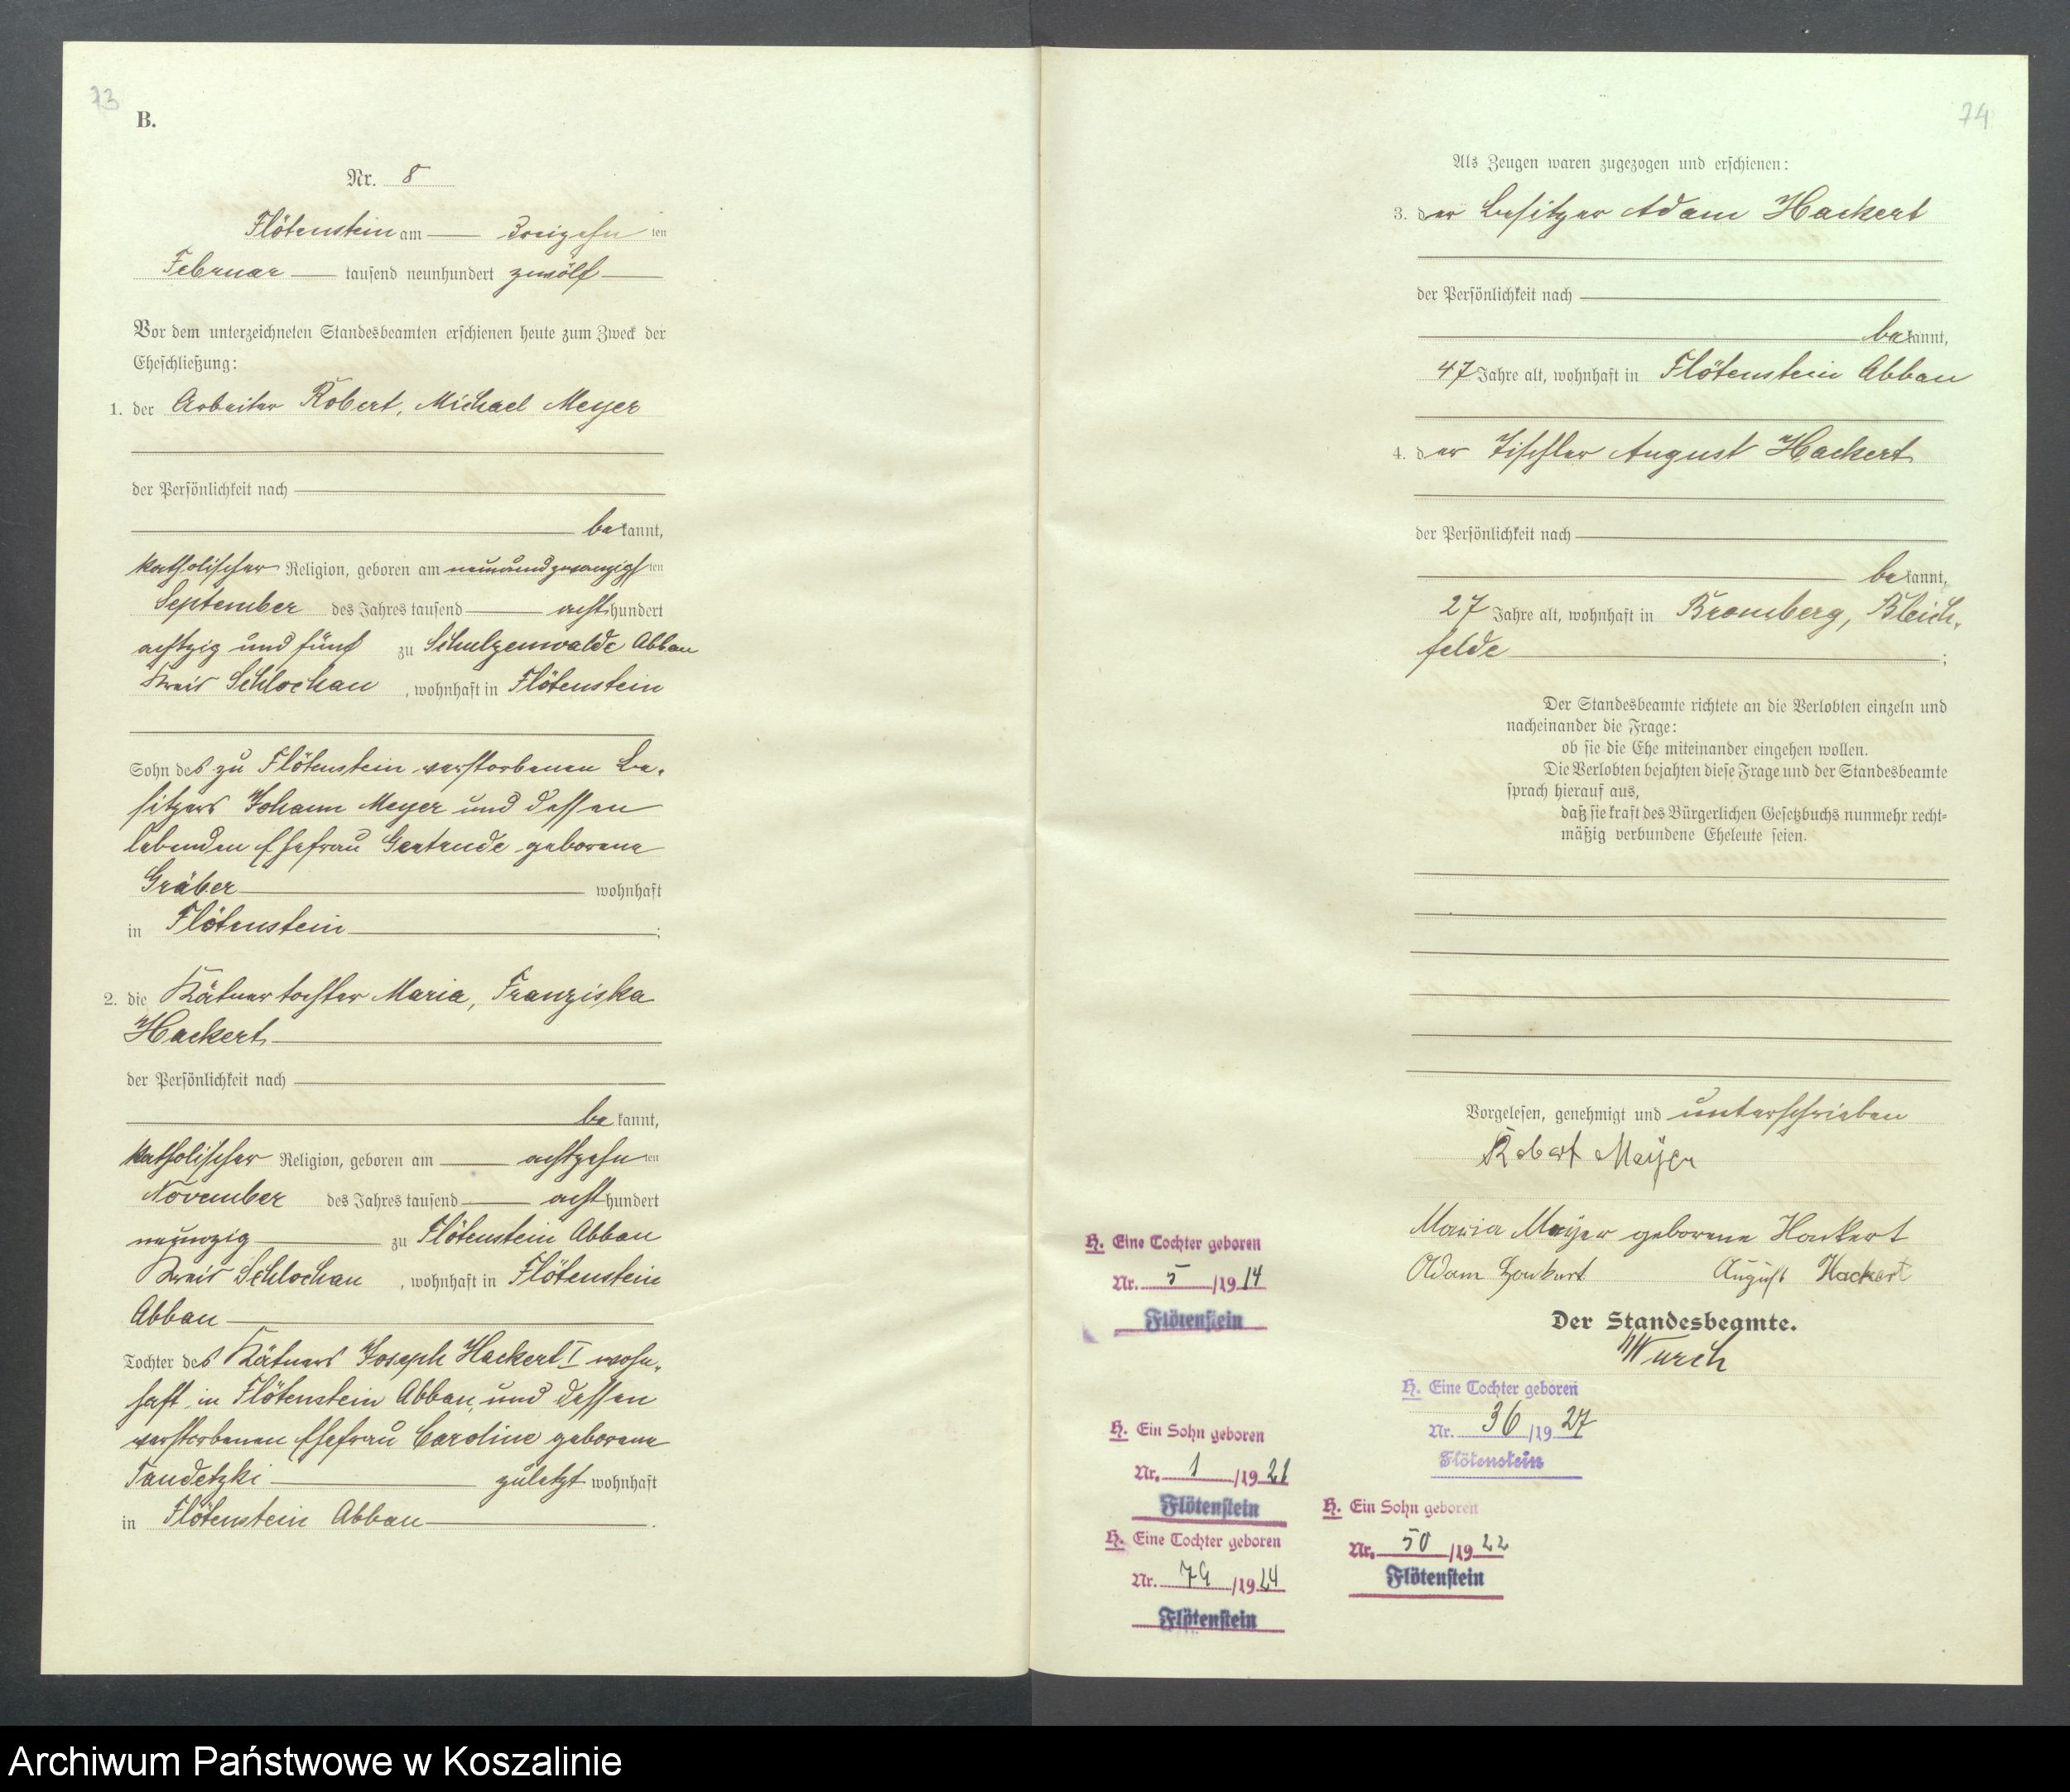 73
B.
Nr. 8
Flötenstein am dreizehn ten
Februar tausend neunhundert zwölf
Vor dem unterzeichneten Standesbeamten erschienen heute zum Zweck der
Eheschließung:
1. der Arbeiter Robert, Michael Meyer
der Persönlichkeit nach
be kannt,
katholischer Religion, geboren am neunundzwanzigsten
September des Jahres tausend acht hundert
achtzig und fünf zu Schulzenwalde Abbau
Kreis Schlochau, wohnhaft in Flötenstein
Sohn des zu Flötenstein verstorbenen Be-
sitzers Johann Meyer und dessen
lebenden Ehefrau Gertrude geborene
Gräber wohnhaft
in Flötenstein;
2. die Kätnertochter Maria, Franziska
Hackert
der Persönlichkeit nach
be kannt,
katholischer Religion, geboren am achtzehn ten
November des Jahres tausend acht hundert
neunzig zu Flötenstein Abbau
Kreis Schlochau, wohnhaft in Flötenstein
Abbau
Tochter des Kätners Joseph Hackert I wohn-
haft in Flötenstein Abbau, und dessen
verstorbenen Ehefrau Caroline geborene
Tandetzki zuletzt wohnhaft
in Flötenstein Abbau.
74
Als Zeugen waren zugezogen und erschienen:
3. der Besitzer Adam Hackert
der Persönlichkeit nach
be kannt,
47 Jahre alt, wohnhaft in Flötenstein Abbau
4. der Tischler August Hackert
der Persönlichkeit nach
be kannt,
27 Jahre alt, wohnhaft in Bromberg, Bleich-
felde;
Der Standesbeamte richtete an die Verlobten einzeln und
nacheinander die Frage:
ob sie die Ehe miteinander eingehen wollen.
Die Verlobten bejahten diese Frage und der Standesbeamte
sprach hierauf aus,
daß sie kraft des Bürgerlichen Gesetzbuchs nunmehr recht-
mäßig verbundene Eheleute seien.
Vorgelesen, genehmigt und unterschrieben
Robert Meyer
Maria Meyer geborene Hackert
Adam Hackert August Hackert
Der Standesbeamte.
Wurch
H. Eine Tochter geboren
Nr. 5 /19 14
Flötenstein
H. Eine Tochter geboren
Nr. 36 /19 27
Flötenstein
H. Ein Sohn geboren
Nr. 1 /19 21
Flötenstein
H. Ein Sohn geboren
Nr. 50 /19 22
Flötenstein
H. Eine Tochter geboren
Nr. 74 /19 24
Flötenstein
Archiwum Państwowe w Koszalinie